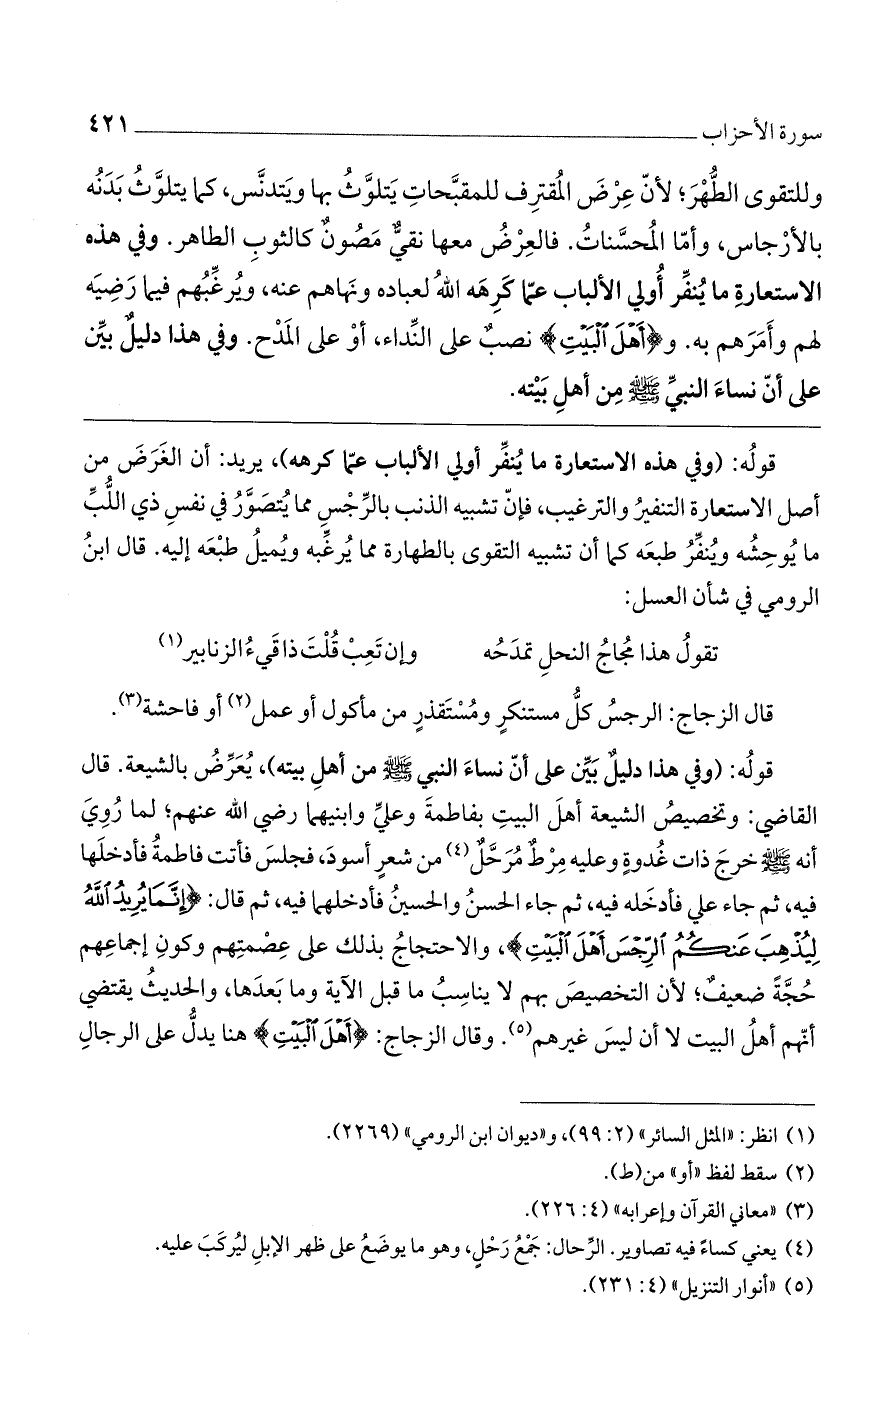 سورة الأحزاب ٤٢١
وللتقوى الطُّهْرَ؛ لأنّ عِرْضَ المُقترِف للمقبَّحاتِ يَتلوَّثُ بها ويَتدنَّس، كما يتلوَّثُ بَدَنُه
بالأرْجاس، وأمّا المُحسَّناتُ. فالعِرْضُ معها نقيٌّ مَصُونٌ كالثوبِ الطاهر. وفي هذه
الاستعارةِ ما يُنفِّر أُولي الألباب عمّا كَرِهَه اللهُ لعباده ونَهاهم عنه، ويُرغِّبُهم فيما رَضِيَه
لهم وأمَرَهم به. و﴿أَهْلَ ٱلْبَيْتِ﴾ نصبٌ على النِّداء، أوْ على المَدْح. وفي هذا دليلٌ بيِّن
على أنّ نساءَ النبيِّ ﷺ مِن أهلِ بَيْته.
قولُه: (وفي هذه الاستعارة ما يُنفِّر أولي الألباب عمّا كرهه)، يريد: أن الغَرَضَ من
أصل الاستعارة التنفيرُ والترغيب، فإنّ تشبيه الذنب بالرِّجْسِ مما يُتصَوَّرُ في نفسِ ذي اللُّبِّ
ما يُوحِشُه ويُنفِّرُ طبعَه كما أن تشبيه التقوى بالطهارة مما يُرغِّبه ويُميلُ طبْعَه إليه. قال ابنُ
الرومي في شأن العسل:
تقولُ هذا مُجاجُ النحلِ تمدَحُه وإن تَعِبْ قُلْتَ ذا قَيءُ الزنابير(١)
قال الزجاج: الرجسُ كلُّ مستنكرٍ ومُسْتَقذرٍ من مأكول أو عمل(٢) أو فاحشة(٣).
قولُه: (وفي هذا دليلٌ بَيِّن على أنّ نساءَ النبي ﷺ من أهلِ بيته)، يُعَرِّضُ بالشيعة. قال
القاضي: وتخصيصُ الشيعة أهلَ البيتِ بفاطمةَ وعليٍّ وابنيهما رضي الله عنهم؛ لما رُوِيَ
أنه ﷺ خرجَ ذات غُدوةٍ وعليه مِرْطٌ مُرَحَّلٌ(٤) من شعرٍ أسودَ، فجلسَ فأتت فاطمةُ فأدخلَها
فيه، ثم جاء علي فأدخَله فيه، ثم جاء الحسنُ والحسينُ فأدخلهما فيه، ثم قال: ﴿إِنَّمَا يُرِيدُ ٱللَّهُ
لِيُذْهِبَ عَنكُمُ ٱلرِّجْسَ أَهْلَ ٱلْبَيْتِ﴾، والاحتجاجُ بذلك على عِصْمتِهم وكونِ إجماعِهم
حُجَّةً ضعيفٌ؛ لأن التخصيصَ بهم لا يناسِبُ ما قبل الآية وما بَعدَها، والحديثُ يقتضي
أنّهم أهلُ البيت لا أن ليسَ غيرهم(٥). وقال الزجاج: ﴿أَهْلَ ٱلْبَيْتِ﴾ هنا يدلُّ على الرجالِ
(١) انظر: «المثل السائر» (٢: ٩٩)، و«ديوان ابن الرومي» (٢٢٦٩).
(٢) سقط لفظ «أو» من (ط).
(٣) «معاني القرآن وإعرابه» (٤: ٢٢٦).
(٤) يعني كساءً فيه تصاوير. الرِّحال: جَمْعُ رَحْلٍ، وهو ما يوضَعُ على ظهر الإبلِ ليُركَبَ عليه.
(٥) «أنوار التنزيل» (٤: ٢٣١).